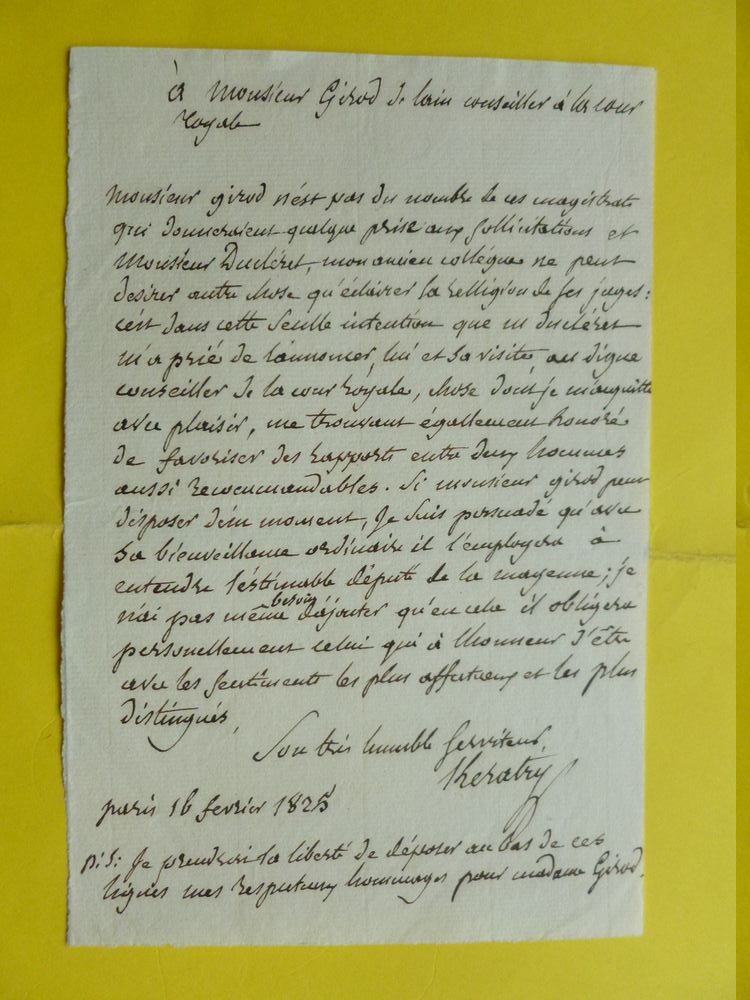 à Monsieur Girod de lain conseiller à la cour
royale
Monsieur girod n'est pas du nombre de ces magistrats
qui donneraient quelque prise aux Sollicitations et
Monsieur Ducléret, mon ancien collégue ne peut
desirer autre chose qu'éclairer la relligion de ses juges:
c'est dans cette Seulle intention que m ducléret
m'a prié de l'annoncer, lui et sa visite, au digne
conseiller de la cour royale, chose dont je m'acquitte
avec plaisir, me trouvant égallement honoré
de favoriser des rapports entre deux hommes
aussi recommandables. Si monsieur girod peut
disposer d'un moment, Je Suis persuadé qu'avec
sa bienveillance ordinaire il l'employera à
entendre l'estimable député de la mayenne; je
n'ai pas même besoin d'ajouter qu'en cela il obligera
personnellement celui qui à l'honneur d'être
avec les Sentiments les plus affectueux et les plus
distingués,
Son très humble Serviteur,
Keratry
paris 16 fevrier 1825
p: S: Je prendrai la liberté de déposer au bas de ces
lignes mes respectueux hommages pour madame Girod.